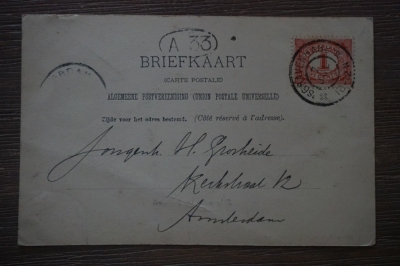 A 33
BRIEFKAART
(CARTE POSTALE)
ALGEMEENE POSTVEREENIGING (UNION POSTALE UNIVERSELLE)
Zijde voor het adres bestemd. (Côté réservé à l'adresse.)
1
Jongenh. H. Grosheide
Kerkstraat 12
Amsterdam